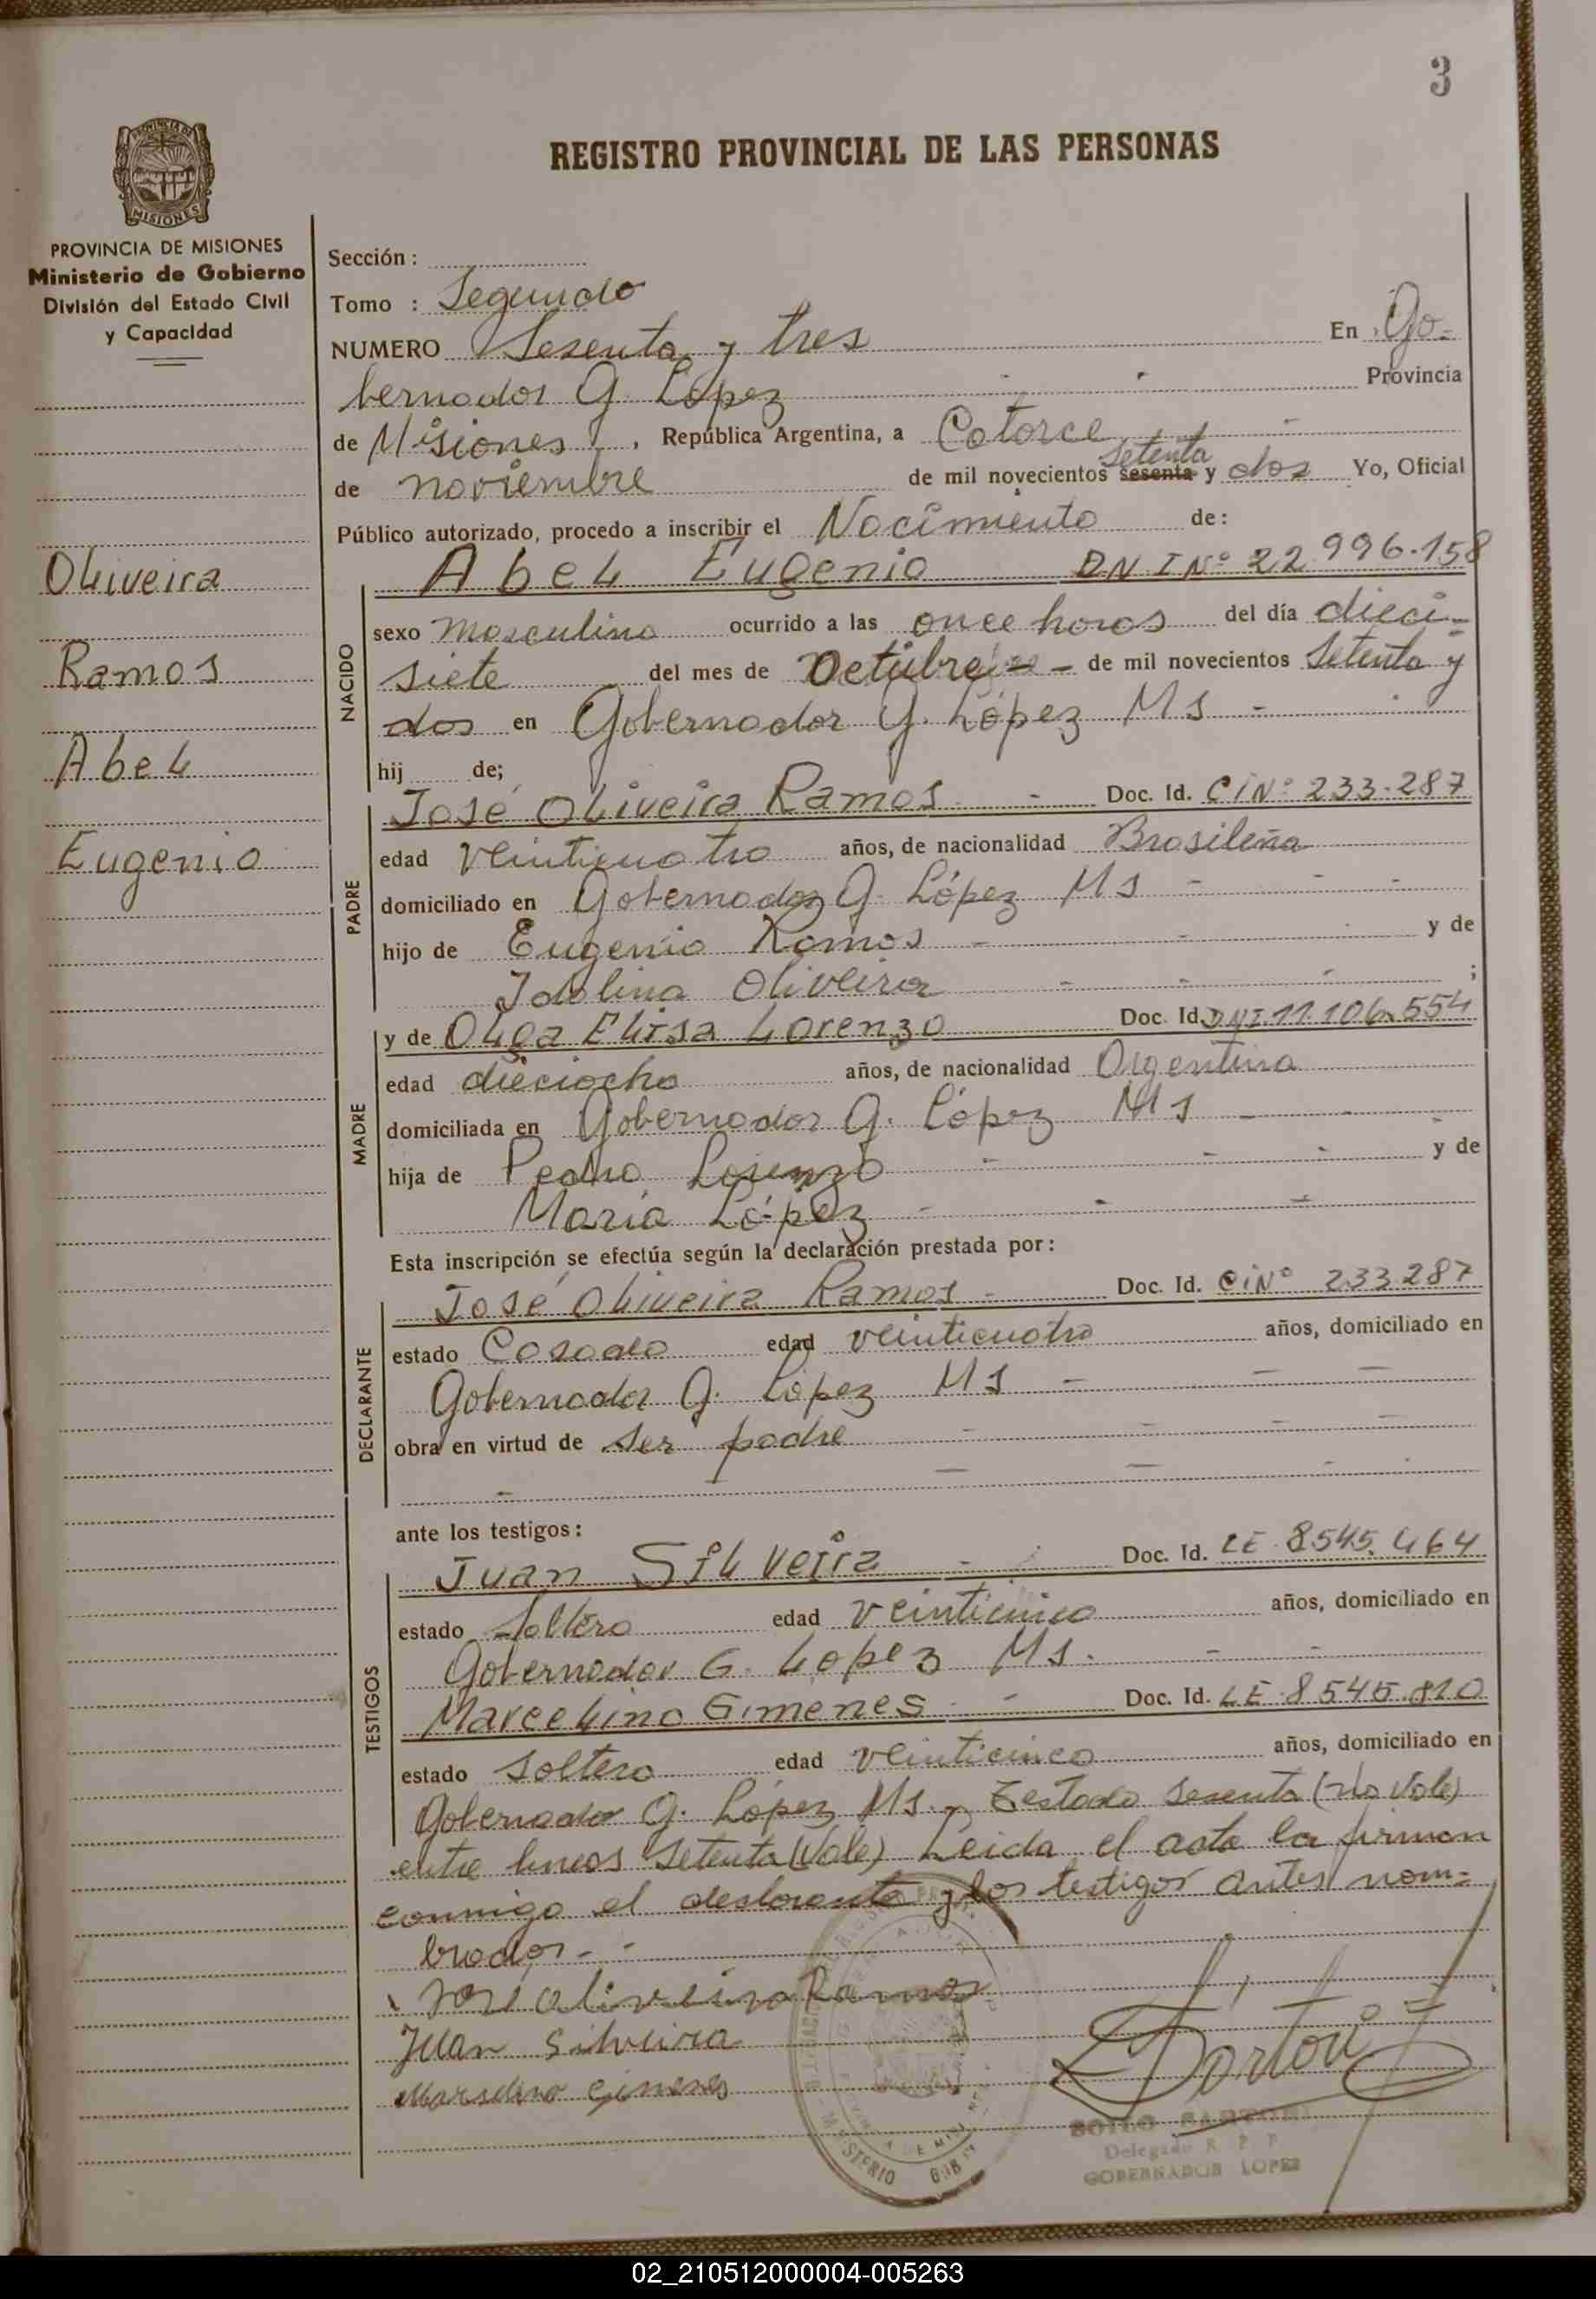 3
REGISTRO PROVINCIAL DE LAS PERSONAS
PROVINCIA DE MISIONES
Ministerio de Gobierno
División del Estado Civil
y Capacidad
Oliveira
Ramos
Abel
Eugenio
Sección :
Tomo : Segundo
NUMERO Sesenta y tres En Go-
bernador G. López Provincia
de Misiones, República Argentina, a Catorce
de noviembre de mil novecientos sesenta setenta y dos Yo, Oficial
Público autorizado, procedo a inscribir el Nacimiento de:
NACIDO
Abel Eugenio DNI Nº 22.996.158
sexo masculino ocurrido a las once horas del día dieci-
siete del mes de Octubre - de mil novecientos setenta y
dos en Gobernador G. López Ms -
hij de;
PADRE
José Oliveira Ramos - Doc. Id. CiNº 233.287
edad veinticuatro años, de nacionalidad Brasileña
domiciliado en Gobernador G. López Ms - - -
hijo de Eugenio Ramos - - y de
Idolina Oliveira - - - ;
MADRE
y de Olga Elisa Lorenzo Doc. Id. DNI.11.106.554
edad dieciocho años, de nacionalidad Argentina
domiciliada en Gobernador G. López Ms - - -
hija de Pedro Lorenzo - - - y de
María López - - -
Esta inscripción se efectúa según la declaración prestada por:
DECLARANTE
José Oliveira Ramos - Doc. Id. CiNº 233287
estado Casado edad veinticuatro años, domiciliado en
Gobernador G. López Ms - - -
obra en virtud de ser padre - - - -
- - - - -
ante los testigos:
TESTIGOS
Juan Silveira - Doc. Id. LE 8545.464
estado Soltero edad veinticinco años, domiciliado en
Gobernador G. Lopez Ms. - -
Marcelino Gimenes - - Doc. Id. LE 8545.810
estado soltero edad veinticinco años, domiciliado en
Gobernador G. López Ms.- Testado sesenta (no Vale)
entre lineas setenta (Vale) Leida el acta la firman
conmigo el declarante y los testigos antes nom-
brados. -
José Oliveira Ramos
Juan Silveira
Marselino Gimenes
Sartori
SOILO SARTORI
Delegado R. P. P.
GOBERNADOR LOPEZ
02_210512000004-005263